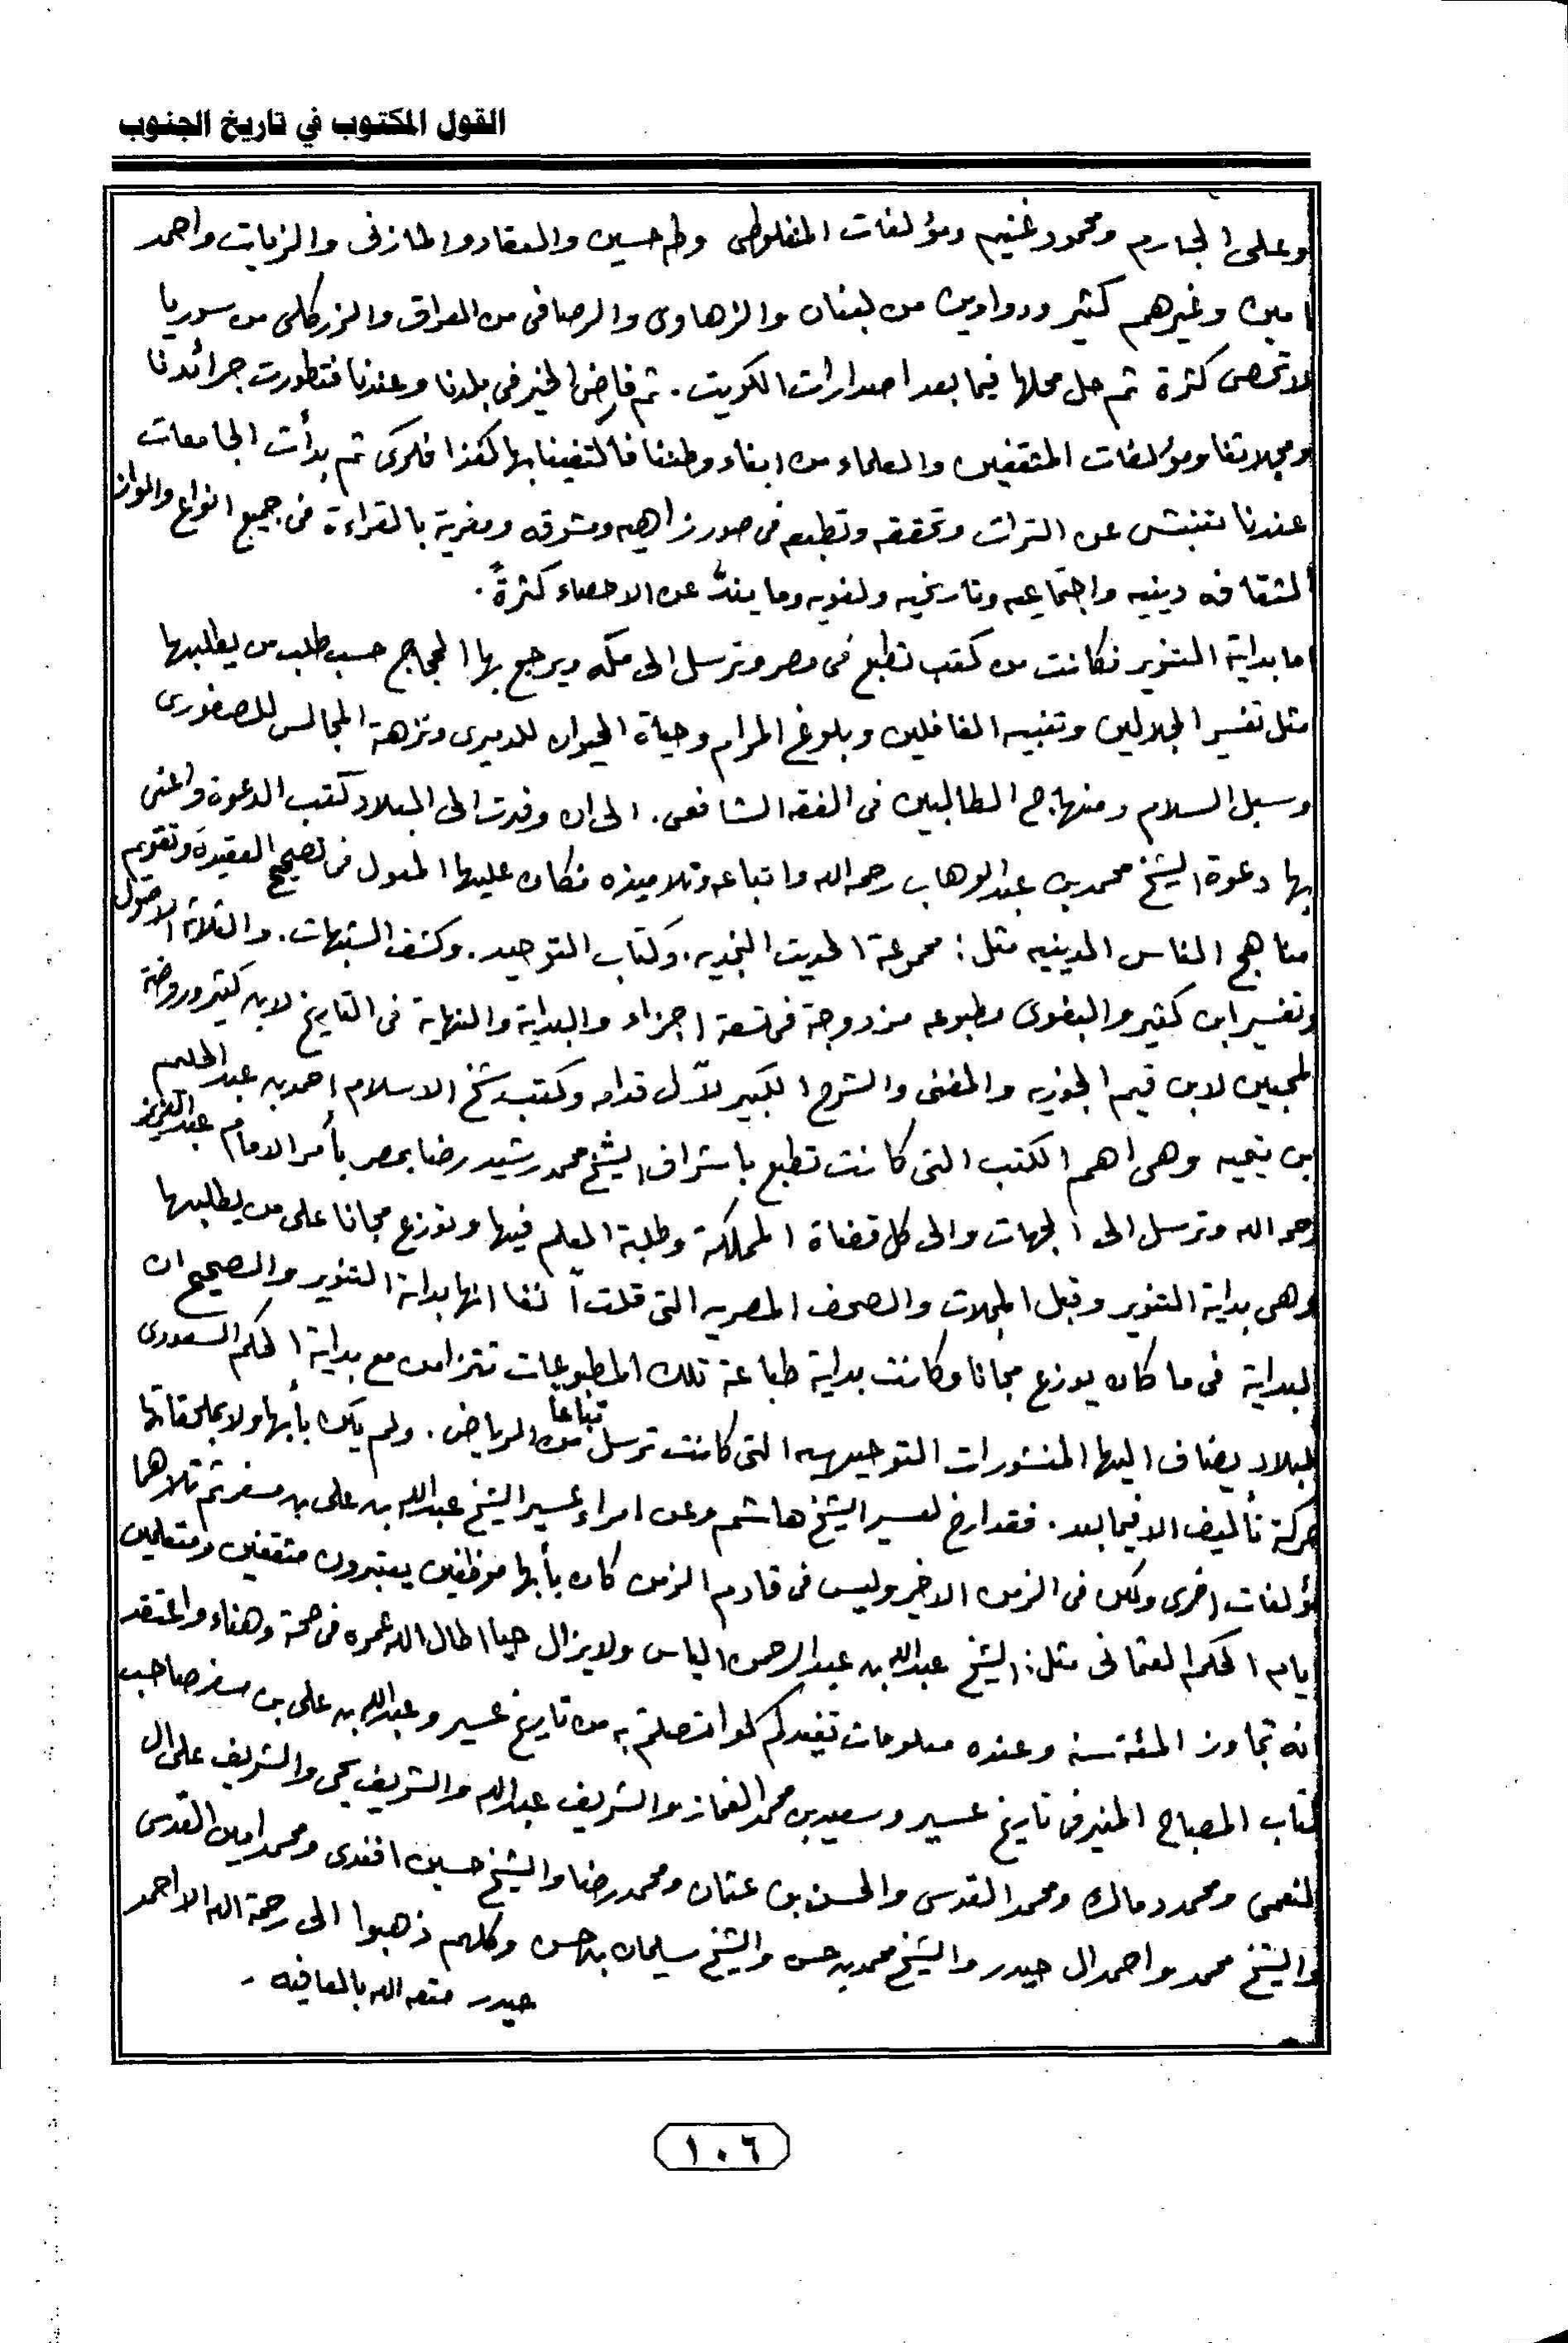 القول المكتوب في تاريخ الجنوب
وعلى الجارم ومحمود غنيم ومؤلفات المنفلوطى وطه حسين والعقاد والمازنى والزيات واحمد
امين وغيرهم كثير ودواوين من لبنان والزهاوى والرصافى من العراق والزركلى من سوريا
لا تحصى كثرة ثم حل محلها فيما بعد اصدارات الكويت. ثم فاض الخير فى بلدنا وعندنا فتطورت جرائدنا
ومجلاتنا ومؤلفات المثقفين والعلماء من ابناء وطننا فاكتفينا بها كغذا فكرى ثم بدأت الجامعات
عندنا تنبش عن التراث وتحققه وتطبعه فى صور زاهيه ومشوقه ومغرية بالقراءة فى جميع انواع والوان
الثقافه دينيه واجتماعيه وتاريخيه ولغويه وما يندّ عن الاحصاء كثرةً.
اما بداية التنوير فكانت من كتب تطبع فى مصر وترسل الى مكه ويرجع بها الحجاج حسب طلب من يطلبها
مثل تفسير الجلالين وتنبيه الغافلين وبلوغ المرام وحياة الحيوان للدميرى ونزهة المجالس للصفورى
وسبل السلام ومنهاج الطالبين فى الفقه الشافعى. الى ان وفدت الى البلاد كتب الدعوة واعنى
بها دعوة الشيخ محمد بن عبدالوهاب رحمه الله واتباعه وتلاميذه فكان عليها المعول فى تصحيح العقيدة وتقويم
مناهج الناس الدينيه مثل: مجموعة الحديث النجديه. وكتاب التوحيد. وكشف الشبهات. والثلاثة الاصول
وتفسير ابن كثير والبغوى مطبوعه مزدوجة فى تسعة اجزاء والبداية والنهاية فى التاريخ لابن كثير وروضة
المحبين لابن قيم الجوزيه والمغنى والشرح الكبير لآل قدامه وكتب شيخ الاسلام احمد بن عبدالحليم
بن تيميه وهى اهم الكتب التى كانت تطبع باشراف الشيخ محمد رشيد رضا بمصر بأمر الامام عبدالعزيز
رحمه الله وترسل الى الجهات والى كل قضاة المملكة وطلبة العلم فيها وتوزع مجانا على من يطلبها
وهى بداية التنوير وقبل المجلات والصحف المصريه التى قلت آنفا انها بداية التنوير والصحيح ان
البداية فى ما كان يوزع مجانا وكانت بداية طباعة تلك المطبوعات تتزامن مع بداية الحكم السعودى
للبلاد يضاف اليها المنشورات التوجيهيه التى كانت ترسل تباعاً من الرياض. ولم يكن بأبها ولا بملحقاتها
حركة تأليف الا فيما بعد. فقد ارخ لعسير الشيخ هاشم وعن امراء عسير الشيخ عبدالله بن على بن مسفر ثم تلاهما
مؤلفات اخرى ولكن فى الزمن الاخير وليس فى قادم الزمن كان بأبها موظفين يعتبرون مثقفين ومتعلمين
ايام الحكم العثمانى مثل: الشيخ عبدالله بن عبدالرحمن الياس ولا يزال حيا اطال الله عمره فى صحة وهناء واعتقد
انه تجاوز المئة سنه وعنده معلومات تفيدكم لو اتصلتم به من تاريخ عسير وعبدالله بن على بن مسفر صاحب
كتاب المصباح المنير فى تاريخ عسير وسعيد بن محمد الغماز والشريف عبدالله والشريف يحى والشريف على ال
النعمى ومحمود مالك ومحمد القدسى والحسن بن عثمان ومحمد رضا والشيخ حسين افندى ومحمد امين القدسى
والشيخ محمد واحمد ال حيدر والشيخ محمد بن حسن والشيخ سليمان بن حسن وكلهم ذهبوا الى رحمة الله الا احمد
حيدر متعه الله بالعافيه -
١٠٦